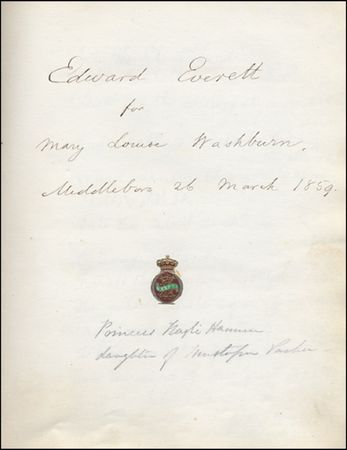 Edward Everett
for
Mary Louise Washburn.
Middleboro 26 March 1859.
Princess Nazli Hanum
daughter of Mustapha Pacha